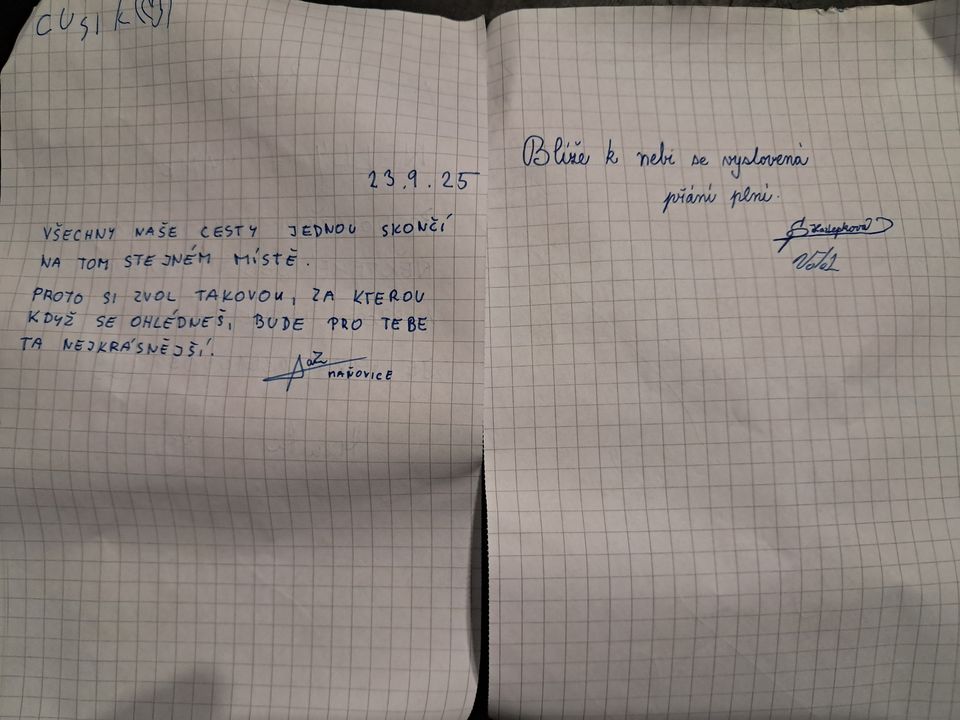 23.9.25
VŠECHNY NAŠE CESTY JEDNOU SKONČÍ
NA TOM STEJNÉM MÍSTĚ.
PROTO SI ZVOL TAKOVOU, ZA KTEROU
KDYŽ SE OHLÉDNEŠ, BUDE PRO TEBE
TA NEJKRÁSNĚJŠÍ.
MAŇOVICE
Blíže k nebi se vyslovená
přání plní.